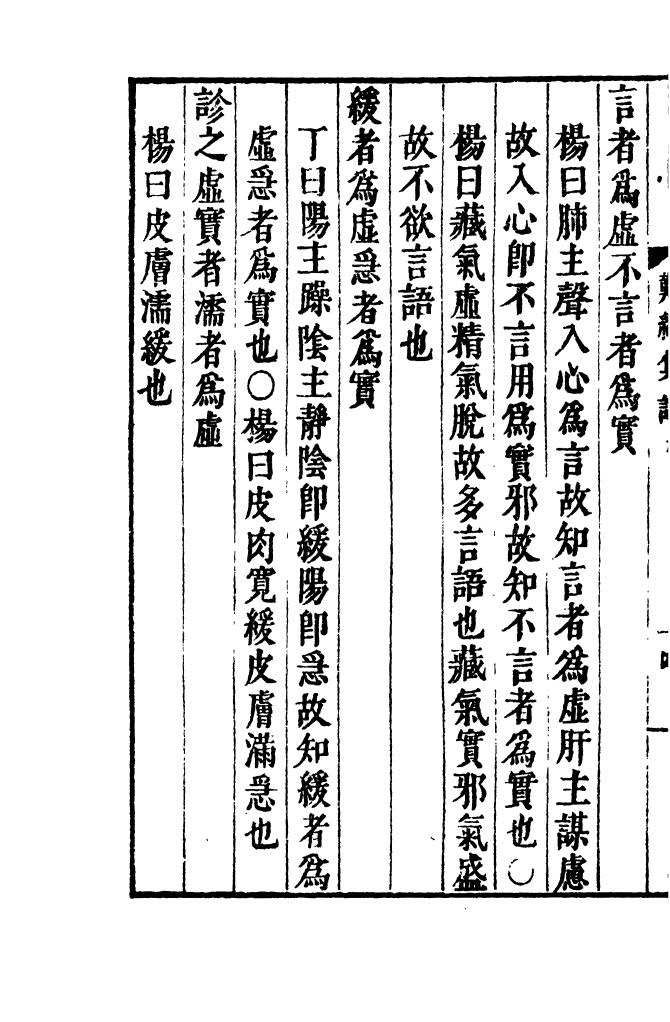 言者爲虛不言者爲實
楊曰肺主聲入心爲言故知言者爲虛肝主謀慮
故入心卽不言用爲實邪故知不言者爲實也〇
楊曰藏氣虛精氣脫故多言語也藏氣實邪氣盛
故不欲言語也
緩者爲虛急者爲實
丁曰陽主躁陰主靜陰卽緩陽卽急故知緩者爲
虛急者爲實也〇楊曰皮肉寬緩皮膚滿急也
診之虛實者濡者爲虛
楊曰皮膚濡緩也